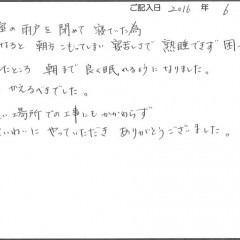 ご記入日 2016 年 6
室の雨戸を閉めて寝ていた為
なると 朝方こもってしまい 寝苦しさで 熟睡できず 困っ
たところ 朝まで良く眠れるようになりました。
かえるべきでした。
い場所での工事にもかかわらず
ていねいに やっていただき ありがとうございました。